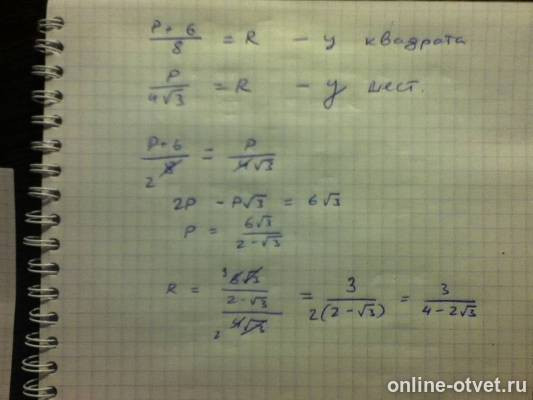 P+6/8 = R - у квадрата
P/4√3 = R - у шест.
P+6/8 2 = P/4√3
2P - P√3 = 6√3
P = 6√3/2-√3
R = 3 6√3/2-√3/2 4√3 = 3/2(2-√3) = 3/4-2√3
online-otvet.ru